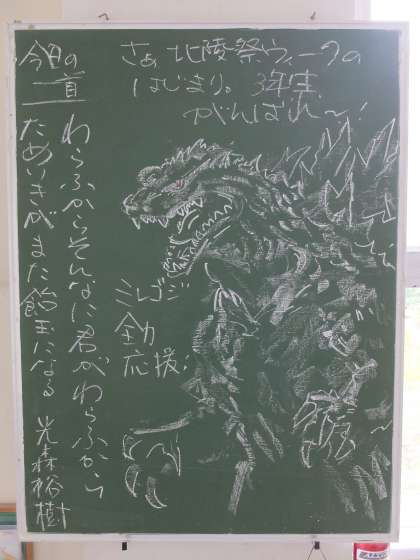 さぁ 北陵祭ウィークの
はじまり。3年生、
がんばれ〜!
今日の
一首
わらふからそんなに君がわらふから
ためいきがまた飴玉になる 光森裕樹
ミレゴジ
全力
応援!